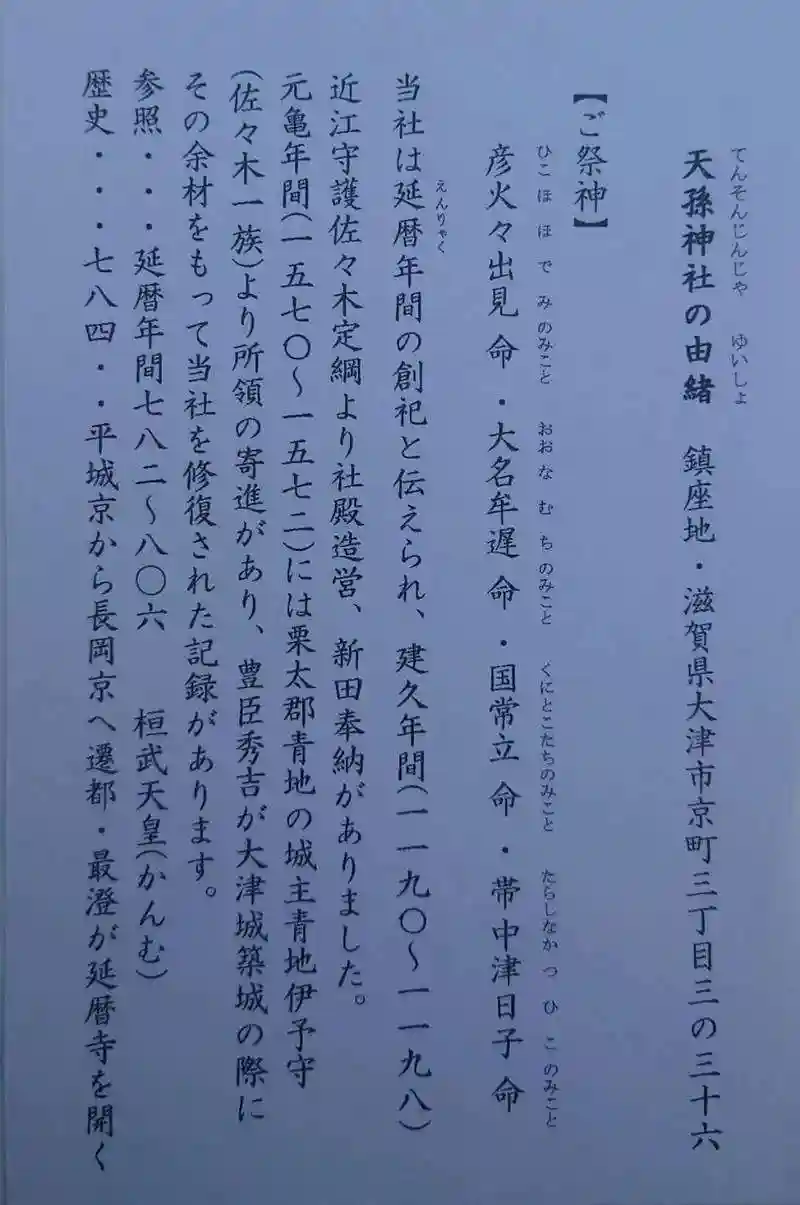 てんそんじんじゃ ゆいしょ
天孫神社の由緒 鎮座地・滋賀県大津市京町三丁目三の三十六
【ご祭神】
ひこほほでみのみこと おおなむちのみこと くにとこたちのみこと たらしなかつひこのみこと
彦火々出見 命・大名牟遅 命・国常立 命・帯中津日子 命
えんりゃく
当社は延暦年間の創祀と伝えられ、建久年間(一一九〇〜一一九八)
近江守護佐々木定綱より社殿造営、新田奉納がありました。
元亀年間(一五七〇〜一五七二)には栗太郡青地の城主青地伊予守
(佐々木一族)より所領の寄進があり、豊臣秀吉が大津城築城の際に
その余材をもって当社を修復された記録があります。
参照・・・延暦年間七八二〜八〇六 桓武天皇(かんむ)
歴史・・・七八四・・平城京から長岡京へ遷都・最澄が延暦寺を開く